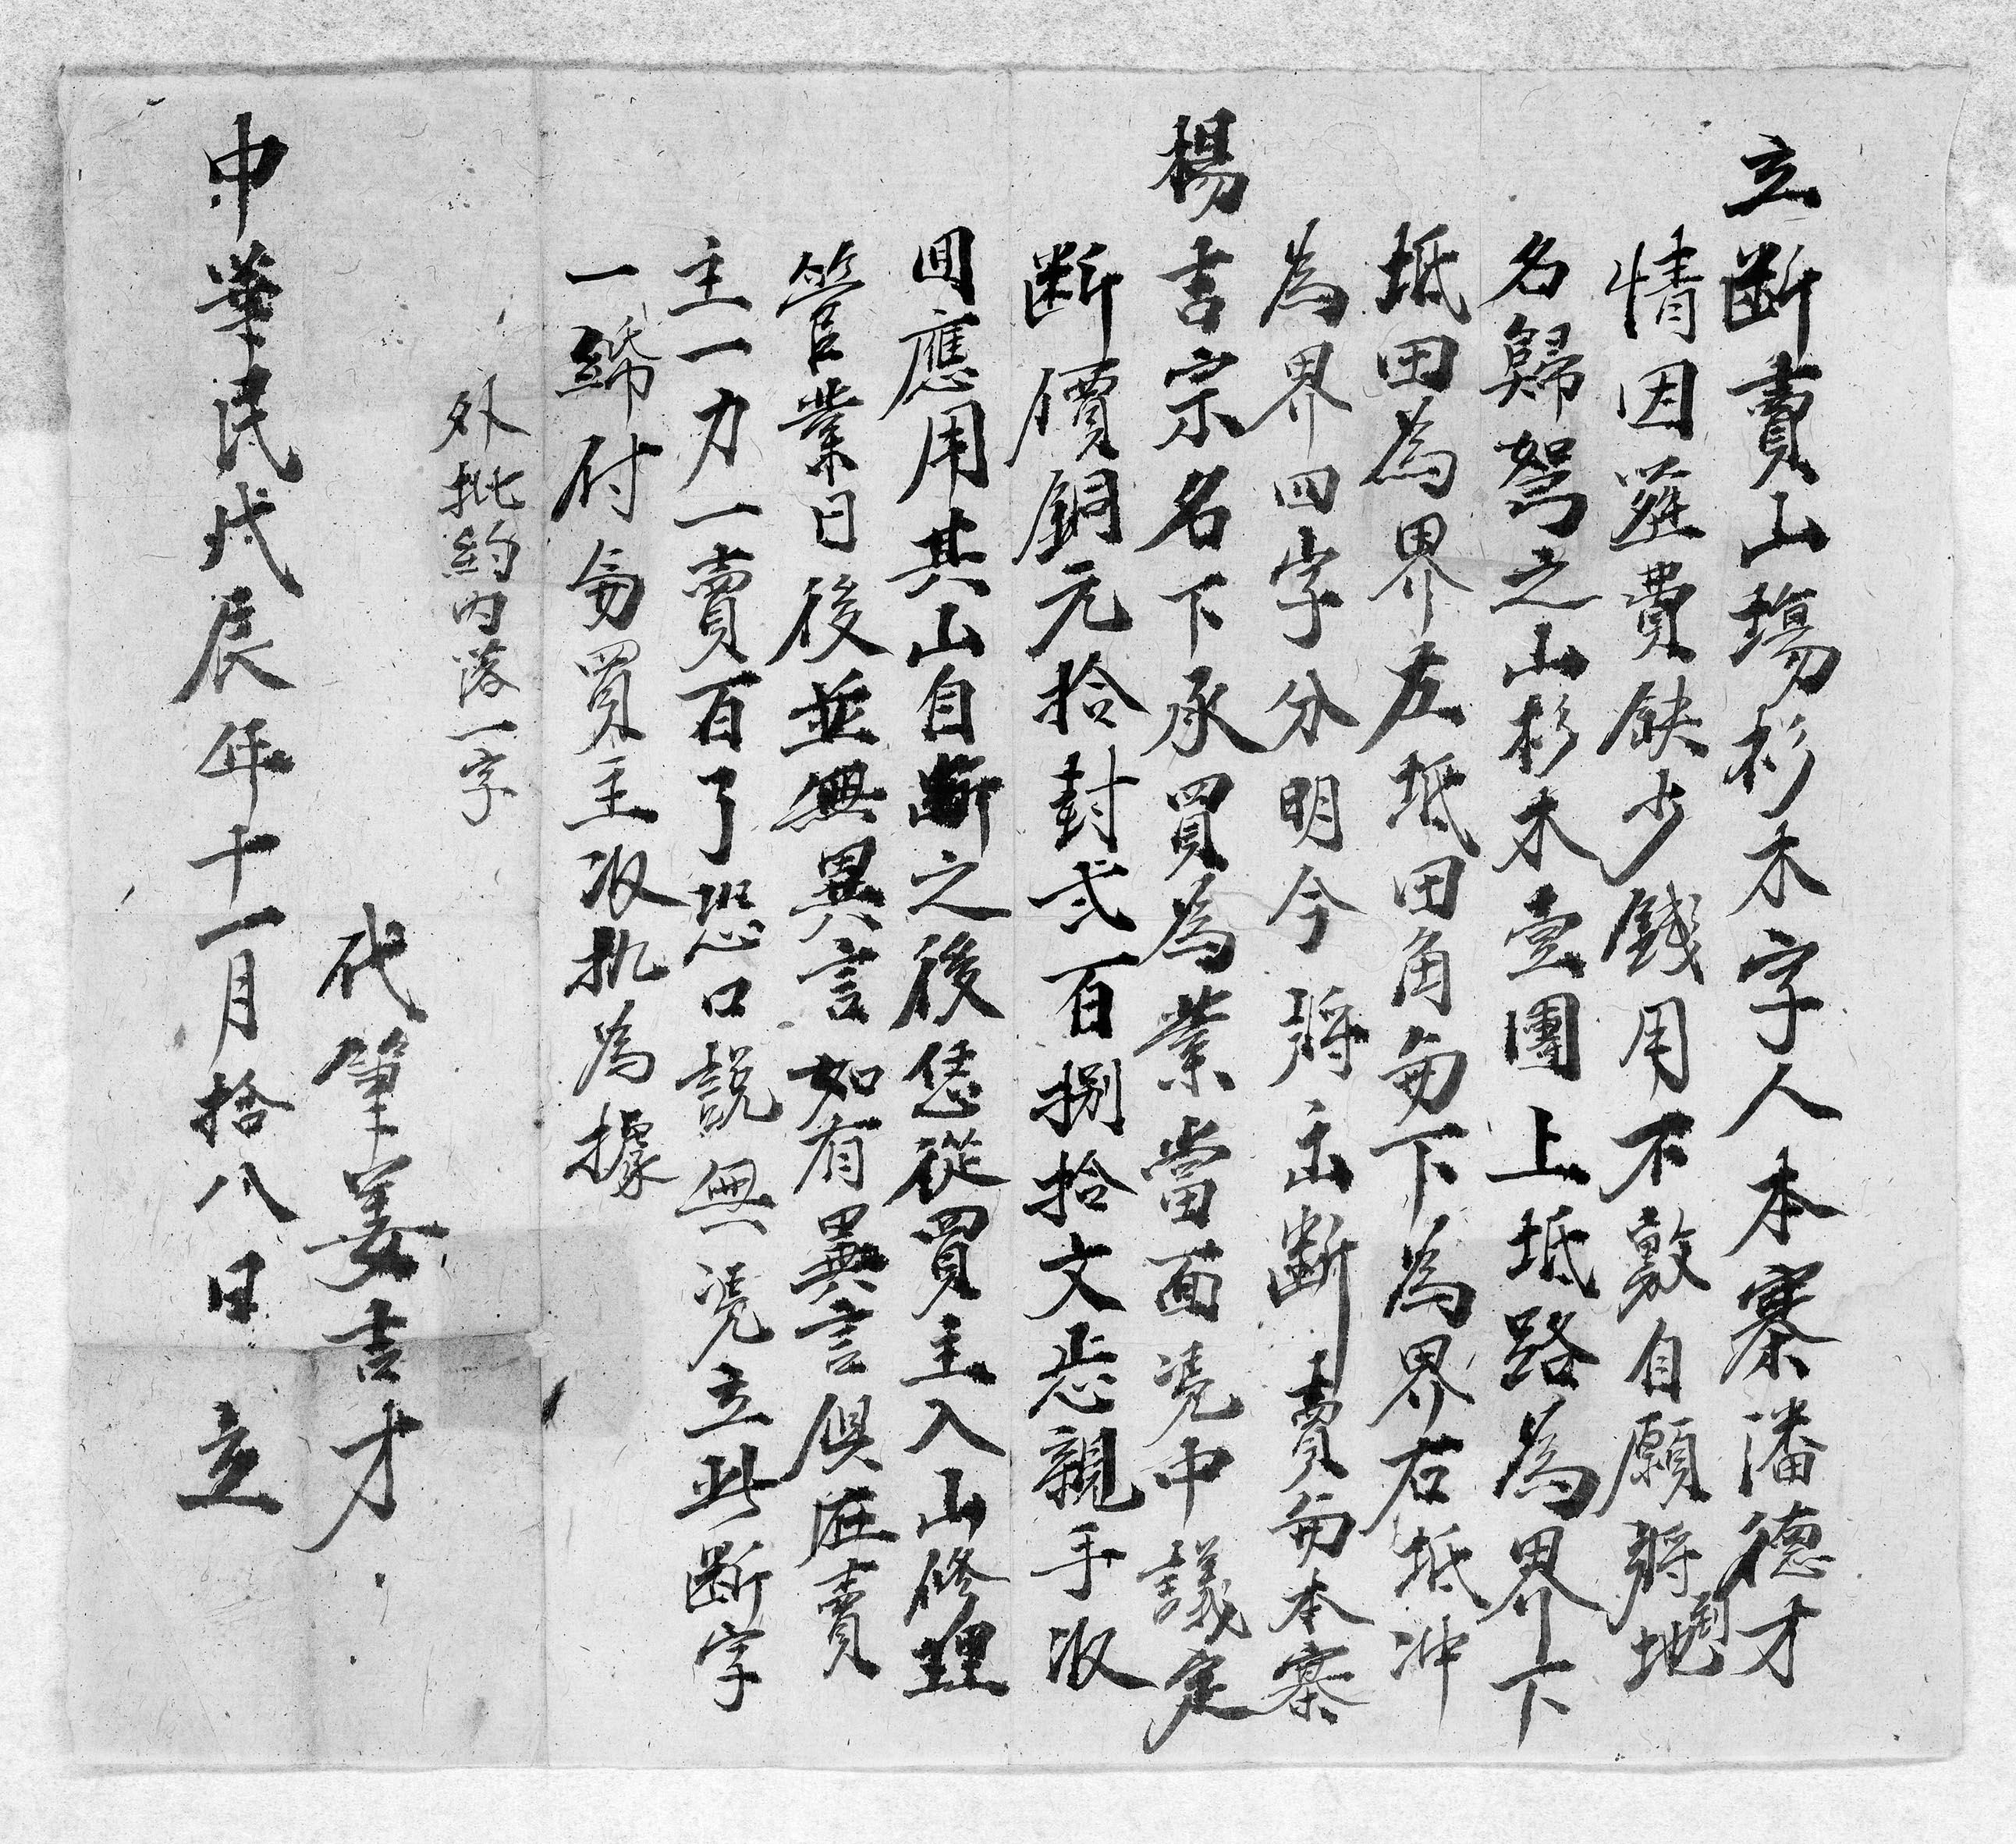 立断賣山塲杉木字人本寨潘德才
情因蓷費缺少錢用不敷自願將到地
名歸驽之山杉木壹團上坻路為界下
坻田為界左坻田角每下為界右坻冲
為界四字分明今將出断賣每本寨
楊吉宗名下承買為業當面凴中議定
断價銅元拾封弍百捌拾文悉親手收
囬應用其山自断之後恁從買主入山修理
管業日後並無異言如有異言俱在賣
主一力一賣百了恐口説無凴立此断字
一紙付每買主收执為據
外批約内落一字
代筆姜吉才
中華民戊辰年十一月拾八日 立